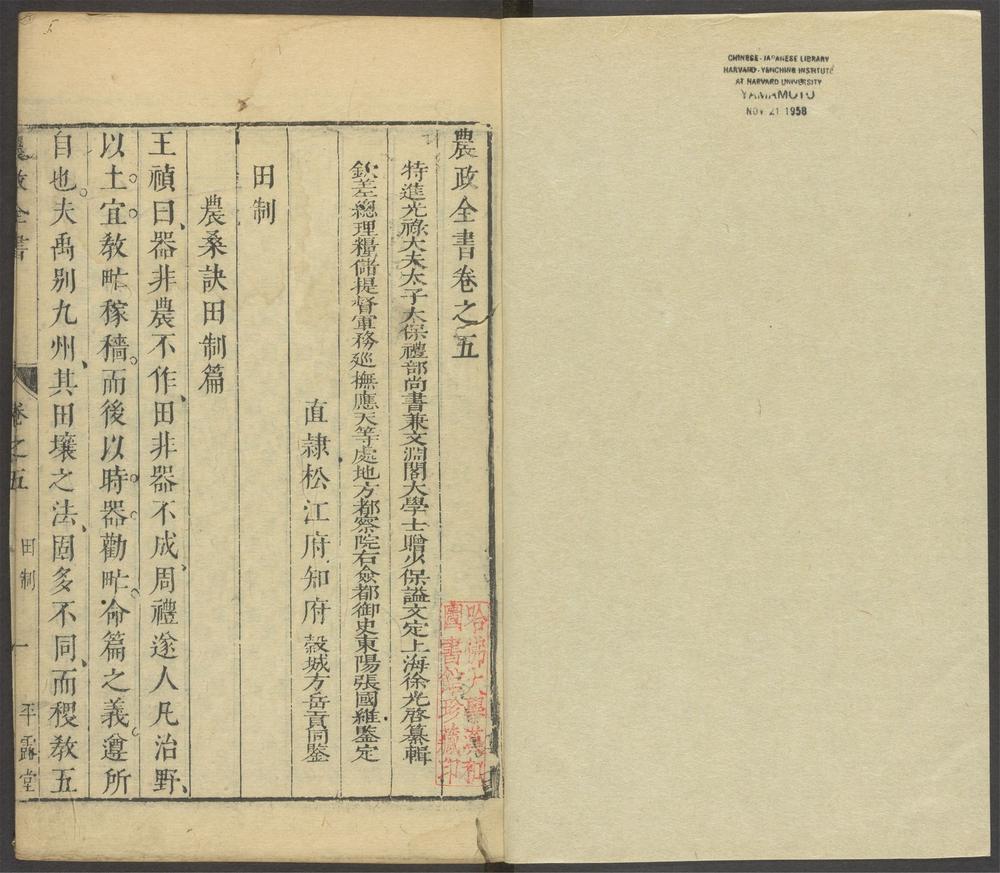 農政全書卷之五
特進光祿大夫太子太保禮部尚書兼文淵閣大學士贈少保謚文定上海徐光啓纂輯
欽差總理糧儲提督軍務巡撫應天等處地方都察院右僉都御史東陽張國維鑒定
直隸松江府知府穀城方岳貢同鑒
田制
農桑訣田制篇
王禎曰、器非農不作、田非器不成、周禮遂人凡治野、
以土宜教甿稼穡。而後以時器勸甿。命篇之義遵所
自也。夫禹别九州、其田壤之法、固多不同、而稷教五
農政全書
卷之五
田制
一
平露堂
哈佛大學漢和
圖書館珍藏印
CHINESE-JAPANESE LIBRARY
HARVARD-YENCHING INSTITUTE
AT HARVARD UNIVERSITY
YAMAMOTO
NOV 21 1958